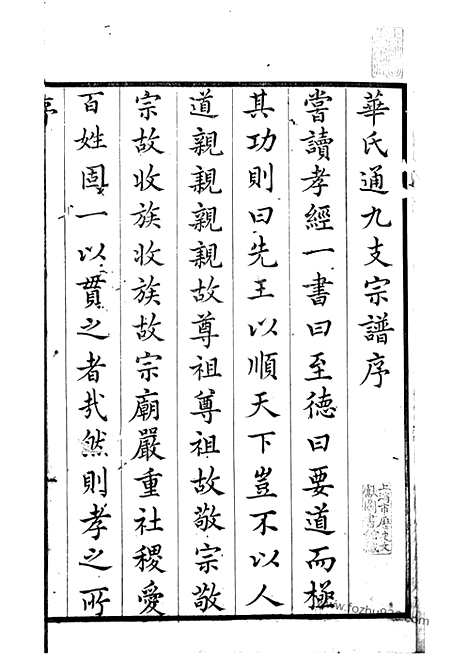 華氏通九支宗譜序
嘗讀孝經一書曰至德曰要道而極
其功則曰先王以順天下豈不以人
道親親親親故尊祖尊祖故敬宗敬
宗故收族收族故宗廟嚴重社稷愛
百姓固一以貫之者哉然則孝之所
序
www.fozhu920.com